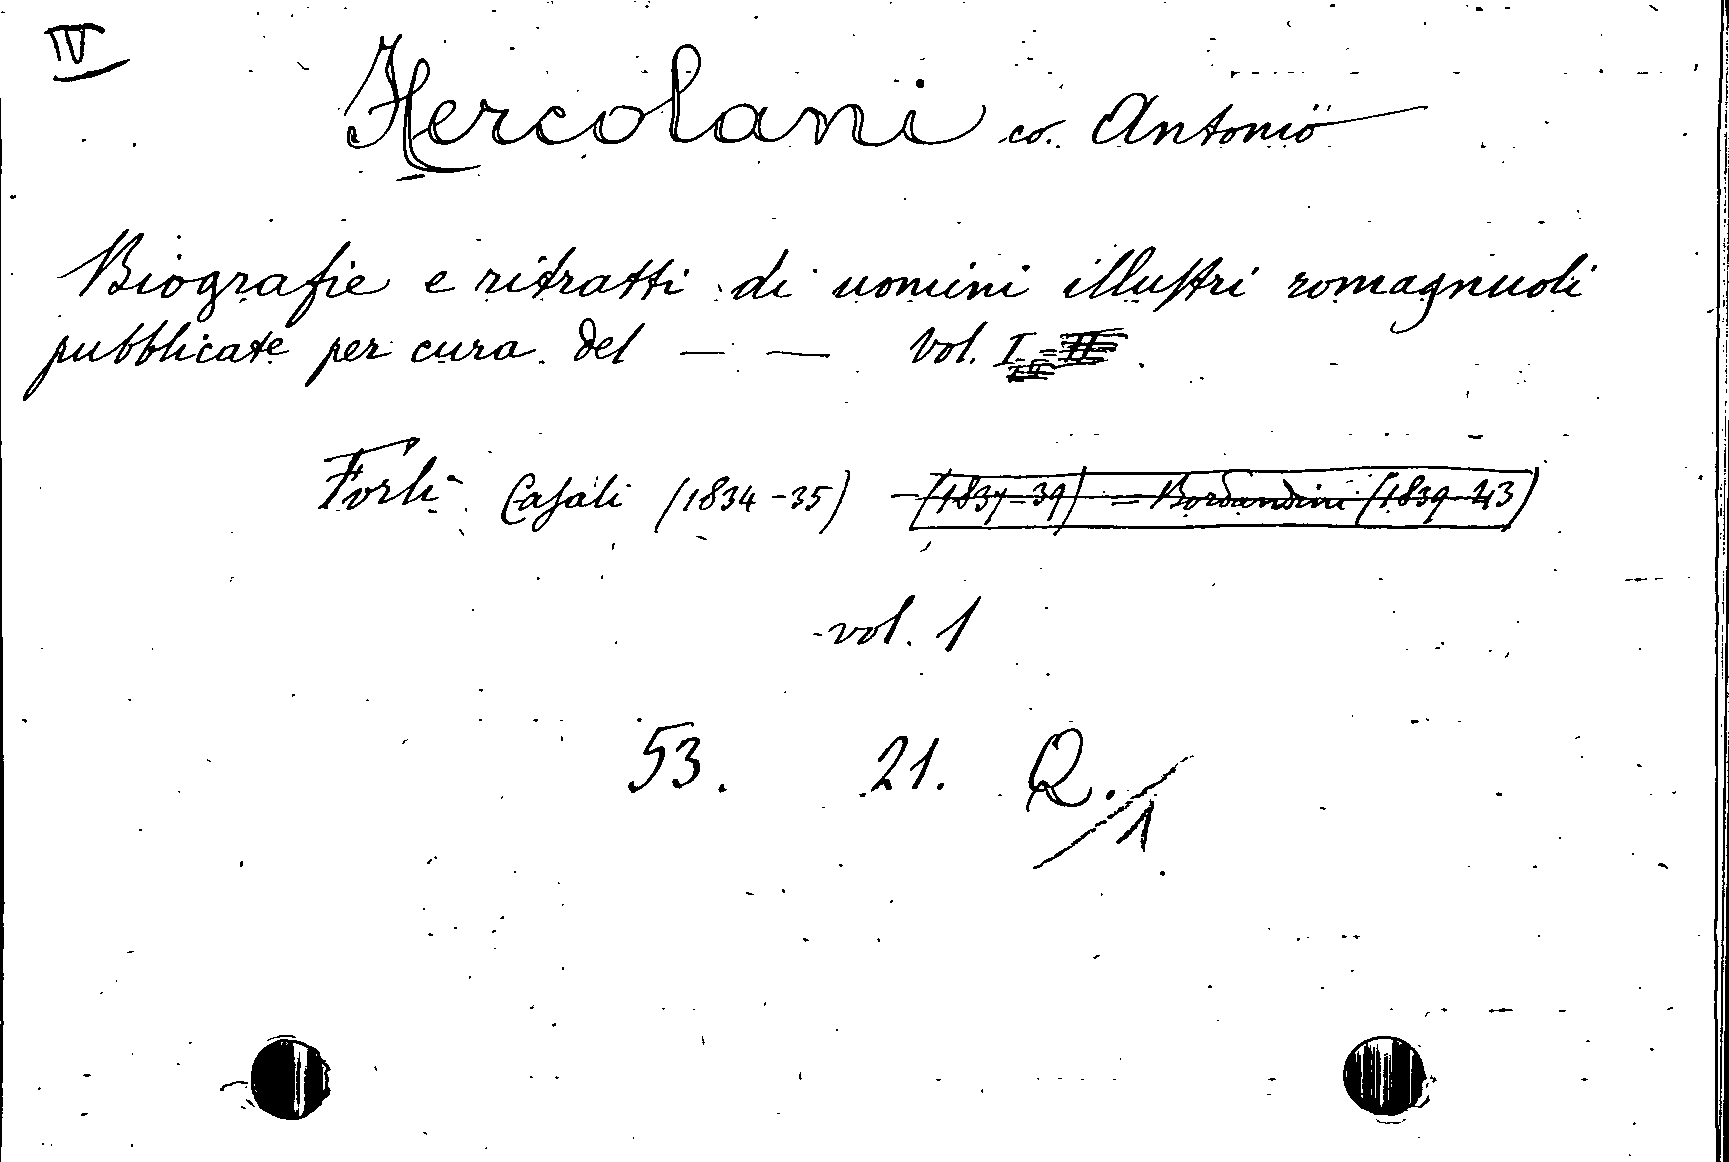 IV
Hercolani co. Antonio
Biografie e ritratti di uomini illustri romagnuoli
pubblicate per cura del — — Vol. I - II.
Forlì Casali (1834-35) - (1837-39) = Bordandini (1839-43)
vol. 1
53. 21. Q./1